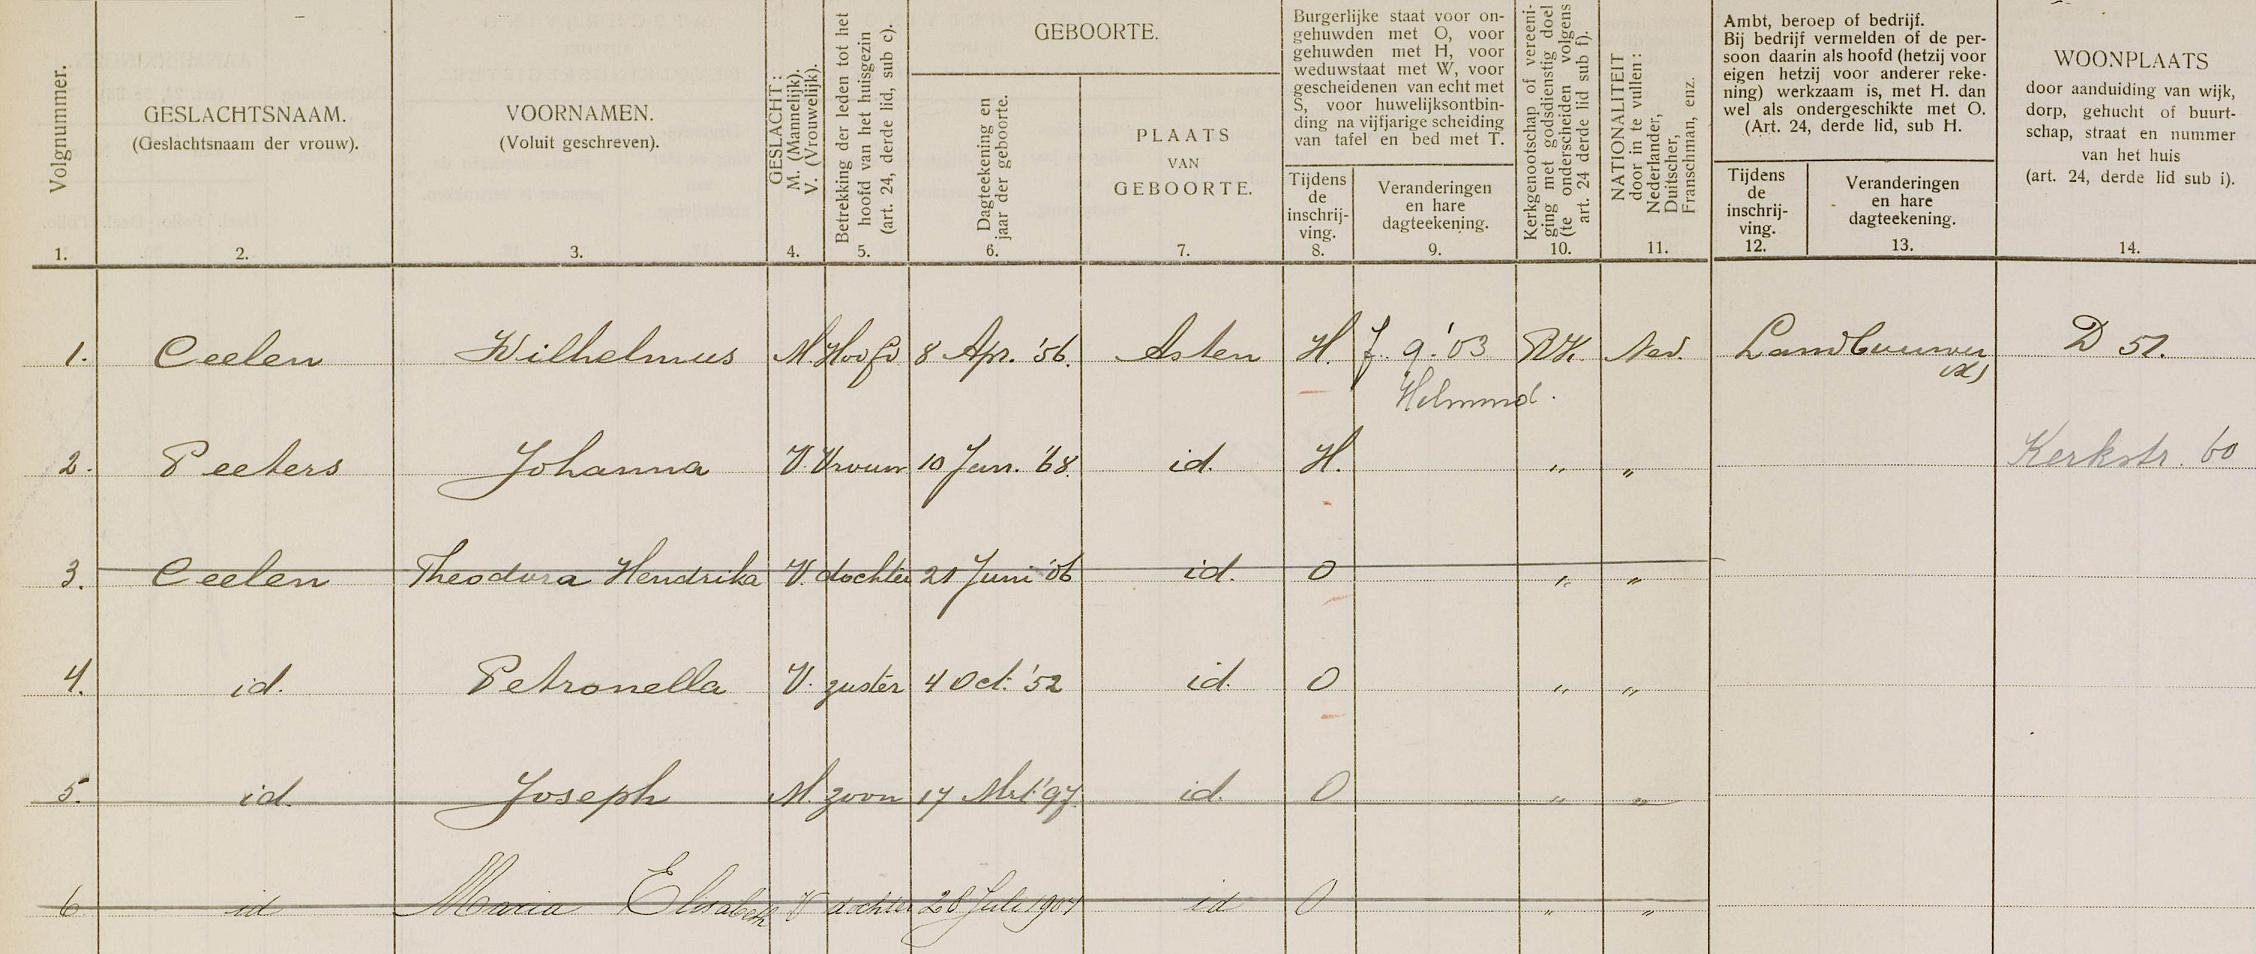 Volgnummer.
1.
GESLACHTSNAAM.
(Geslachtsnaam der vrouw).
2.
VOORNAMEN.
(Voluit geschreven).
3.
GESLACHT:
M. (Mannelijk).
V. (Vrouwelijk).
4.
Betrekking der leden tot het
hoofd van het huisgezin
(art. 24, derde lid, sub c).
5.
GEBOORTE.
Dagteekening en
jaar der geboorte.
6.
PLAATS
VAN
GEBOORTE.
7.
Burgerlijke staat voor on-
gehuwden met O, voor
gehuwden met H, voor
weduwstaat met W, voor
gescheidenen van echt met
S, voor huwelijksontbin-
ding na vijfjarige scheiding
van tafel en bed met T.
Tijdens
de
inschrij-
ving.
8.
Veranderingen
en hare
dagteekening.
9.
Kerkgenootschap of vereeni-
ging met godsdienstig doel
(te onderscheiden volgens
art. 24 derde lid sub f).
10.
NATIONALITEIT
door in te vullen:
Nederlander,
Duitscher,
Franschman, enz.
11.
Ambt, beroep of bedrijf.
Bij bedrijf vermelden of de per-
soon daarin als hoofd (hetzij voor
eigen hetzij voor anderer reke-
ning) werkzaam is, met H. dan
wel als ondergeschikte met O.
(Art. 24, derde lid, sub H.
Tijdens
de
inschrij-
ving.
12.
Veranderingen
en hare
dagteekening.
13.
WOONPLAATS
door aanduiding van wijk,
dorp, gehucht of buurt-
schap, straat en nummer
van het huis
(art. 24, derde lid sub i).
14.
1. Ceelen Wilhelmus M. Hoofd 8 Apr. '56. Asten H. 9.'03 R.K. Ned. Landbouwer D 51.
Helmond.
2. Peeters Johanna V. Vrouw 10 Jan. '68. id. H. " " Kerkstr. 60
3. Ceelen Theodora Hendrika V. dochter 21 Juni '06 id. O " "
4. id. Petronella V. zuster 4 Oct. '52 id. O " "
5. id. Joseph M. zoon 17 Mrt. '97. id. O " "
6 id Maria Elisabeth V dochter 28 Juli 1904 id O " "